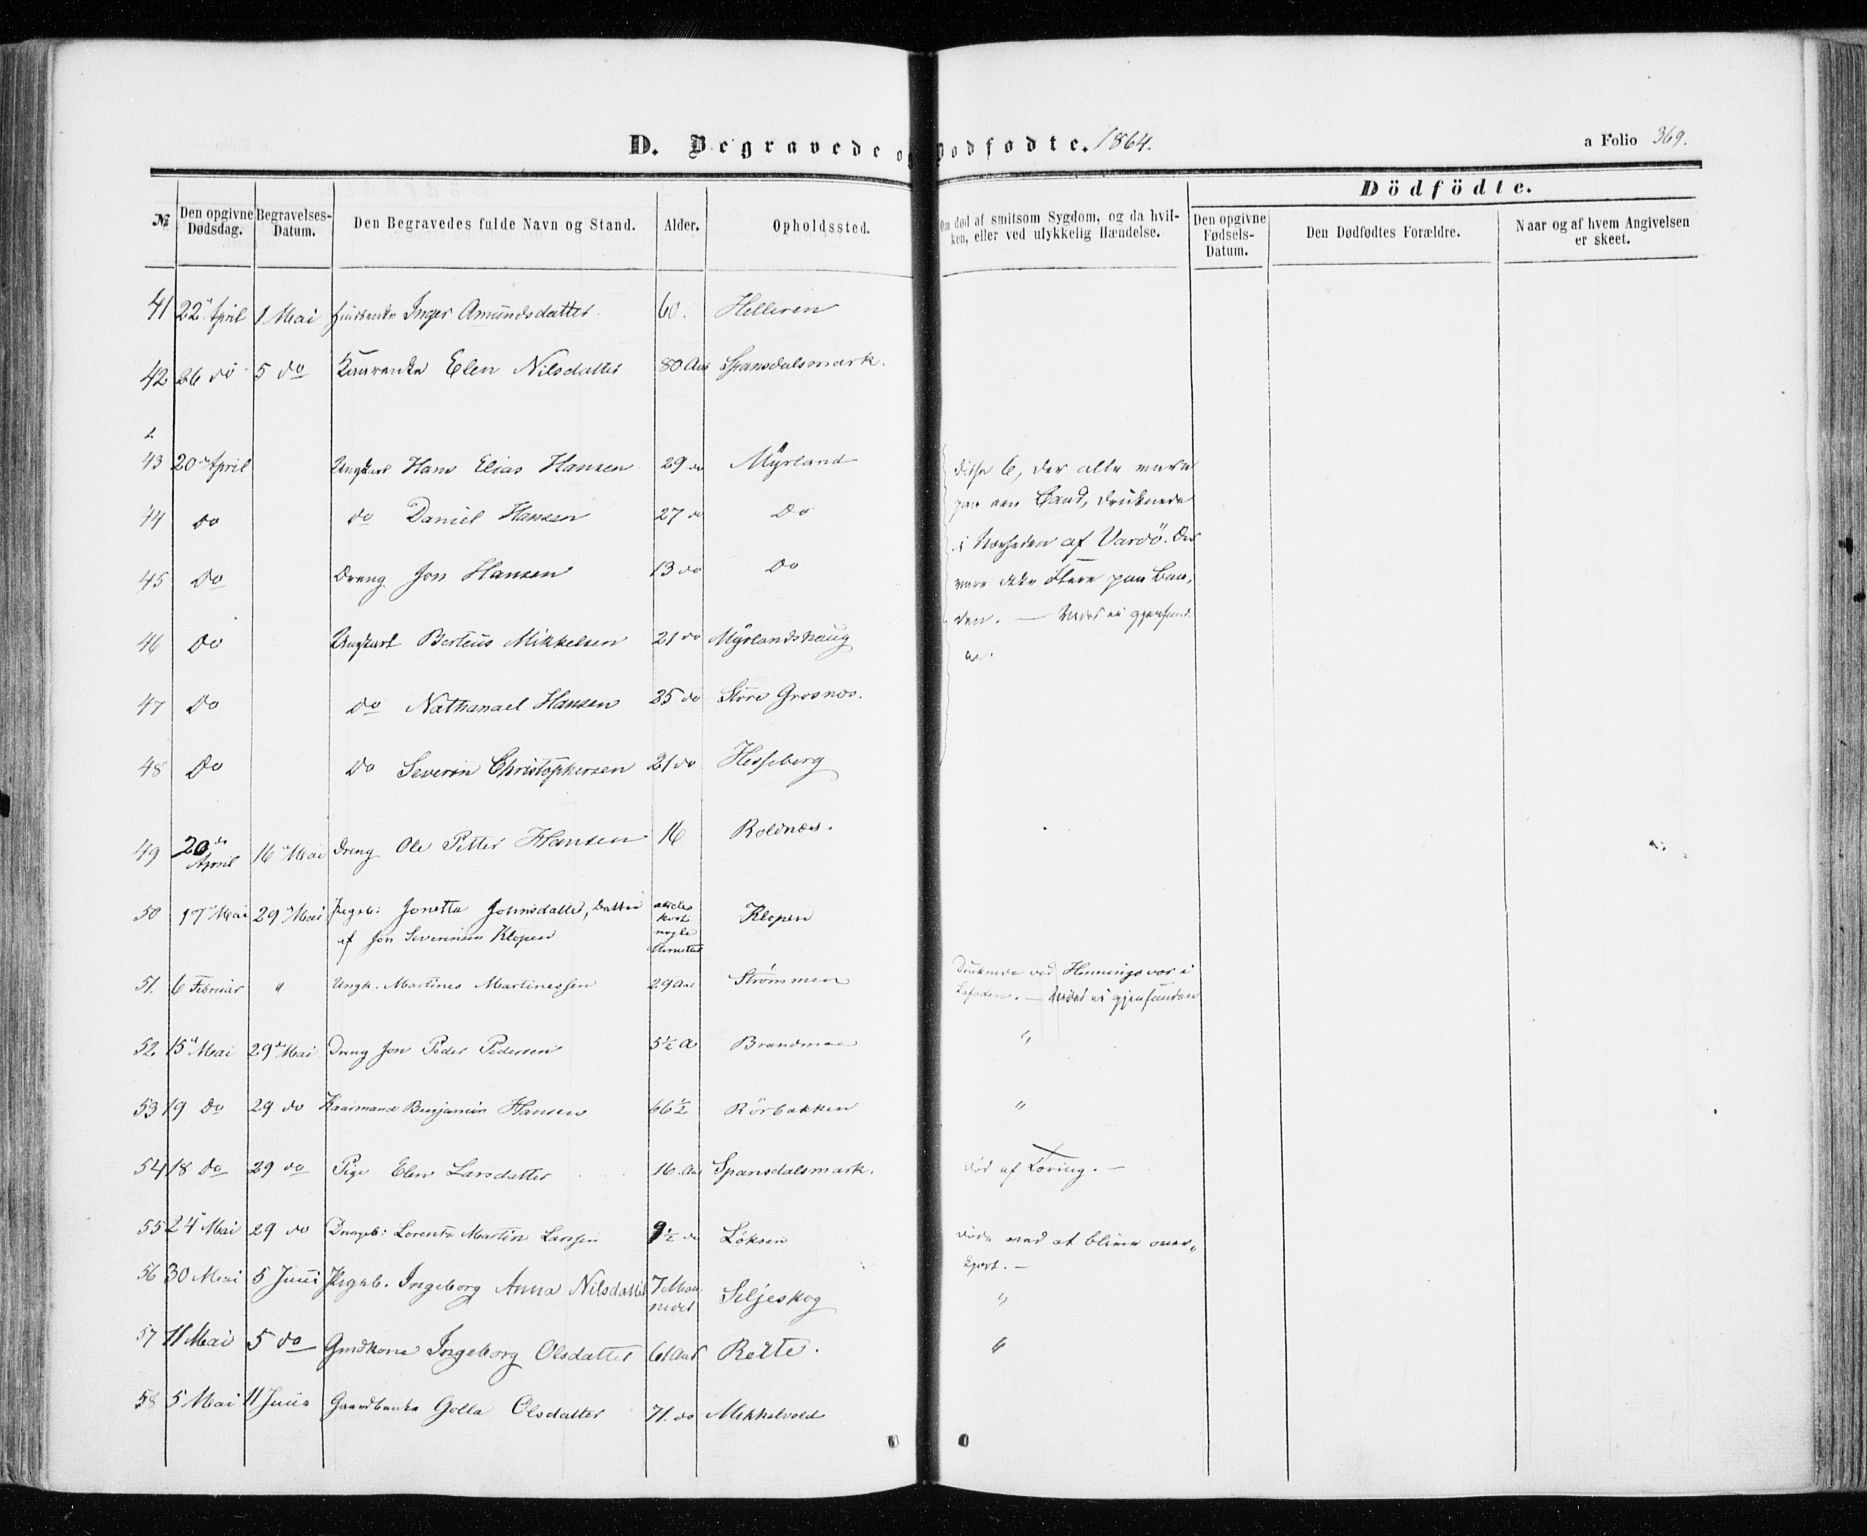 D. Begravede og Dødfødte. 1864.
a Folio 369.
Dödfödte.
№ Den opgivne Dødsdag. Begravelses-Datum. Den Begravedes fulde Navn og Stand. Alder. Opholdssted. Om død af smitsom Sygdom, og da hvilken, eller ved ulykkelig Hændelse. Den opgivne Fødsels-Datum. Den Dødfødtes Forældre. Naar og af hvem Angivelsen er skeet.
41 22 April 1 Mai Huusenke Inger Amundsdatter. 60. Helleren
42 26 do 5 do Enke Elen Nilsdatter 80 Aar Spansdalsmark.
43 20 April Ungkarl Hans Elias Hansen 29 do Myrland
44 Do do Daniel Hansen 27 do Do
45 Do Dreng Jon Hansen 13 do Do
46 Do Ungkarl Berteus Mikkelsen 21 do Myrlandshaug
47 Do do Nathanael Hansen 25 do Store Grosnæs.
48 Do do Severin Christophersen 21 do Hesseberg
disse 6, der alle vare
paa een Baad, druknede
i Nærheden af Vardö. Der
vare ikke flere paa Baa-
den. — Liget ei gjenfund
et.
49 20 April 16 Mai Dreng Ole Petter Hansen 16 Roldnæs.
50 17 Mai 29 Mai Pigeb: Jonetta Johnsdatter, Datter
af Jon Severinsen Klopen
nogle
Klopen
51. 6 Februar " Ungk. Martines Martinessen 29 Aar Strømmen Druknede ved Henningsvær i
Lofoden. — Liget ei gjenfunden
52. 15 Mai 29 Mai Dreng Jon Peder Pedersen 5½ A Brandmoe "
53 19 Do 29 do Kaarmand Benjamin Hansen 66½ Rörbakken "
54 18 Do 29 do Pige Elen Larsdatter 16. Aar Spansdalsmark. død af Tæring. —
55 24 Mai 29 do Drengeb: Lorents Martin Larssen 9½ do Löksen døde ved at blive over-
kjørt. —
56 30 Mai 5 Juni Pigeb. Ingeborg Anna Nilsdatter 7 Maa-
neder Siljeskog "
57 11 Mai 5 do Gmdkone Ingeborg Olsdatter 61 Aar Reite. "
58 5 Mai 11 Juni Golla Olsdatter 71. do Mikkelvold